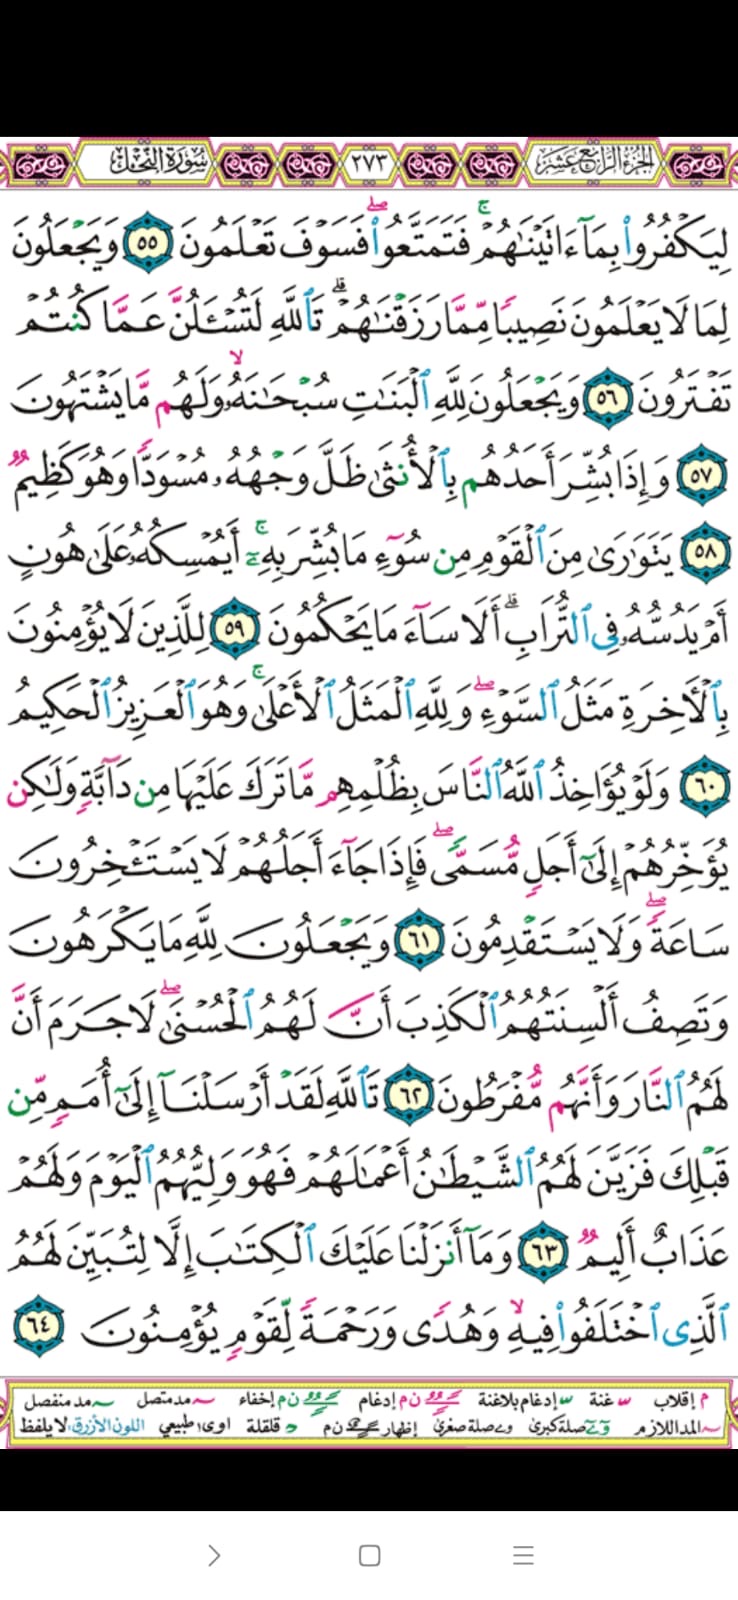 الجزء الرابع عشر ٢٧٣ سورة النحل
لِيَكْفُرُوا۟ بِمَآ ءَاتَيْنَـٰهُمْ ۚ فَتَمَتَّعُوا۟ ۖ فَسَوْفَ تَعْلَمُونَ ٥٥ وَيَجْعَلُونَ
لِمَا لَا يَعْلَمُونَ نَصِيبًا مِّمَّا رَزَقْنَـٰهُمْ ۗ تَٱللَّهِ لَتُسْـَٔلُنَّ عَمَّا كُنتُمْ
تَفْتَرُونَ ٥٦ وَيَجْعَلُونَ لِلَّهِ ٱلْبَنَـٰتِ سُبْحَـٰنَهُۥ ۙ وَلَهُم مَّا يَشْتَهُونَ
٥٧ وَإِذَا بُشِّرَ أَحَدُهُم بِٱلْأُنثَىٰ ظَلَّ وَجْهُهُۥ مُسْوَدًّا وَهُوَ كَظِيمٌ
٥٨ يَتَوَٰرَىٰ مِنَ ٱلْقَوْمِ مِن سُوٓءِ مَا بُشِّرَ بِهِۦٓ ۚ أَيُمْسِكُهُۥ عَلَىٰ هُونٍ
أَمْ يَدُسُّهُۥ فِى ٱلتُّرَابِ ۗ أَلَا سَآءَ مَا يَحْكُمُونَ ٥٩ لِلَّذِينَ لَا يُؤْمِنُونَ
بِٱلْـَٔاخِرَةِ مَثَلُ ٱلسَّوْءِ ۖ وَلِلَّهِ ٱلْمَثَلُ ٱلْأَعْلَىٰ ۚ وَهُوَ ٱلْعَزِيزُ ٱلْحَكِيمُ
٦٠ وَلَوْ يُؤَاخِذُ ٱللَّهُ ٱلنَّاسَ بِظُلْمِهِم مَّا تَرَكَ عَلَيْهَا مِن دَآبَّةٍ وَلَـٰكِن
يُؤَخِّرُهُمْ إِلَىٰٓ أَجَلٍ مُّسَمًّى ۖ فَإِذَا جَآءَ أَجَلُهُمْ لَا يَسْتَـْٔخِرُونَ
سَاعَةً ۖ وَلَا يَسْتَقْدِمُونَ ٦١ وَيَجْعَلُونَ لِلَّهِ مَا يَكْرَهُونَ
وَتَصِفُ أَلْسِنَتُهُمُ ٱلْكَذِبَ أَنَّ لَهُمُ ٱلْحُسْنَىٰ ۖ لَا جَرَمَ أَنَّ
لَهُمُ ٱلنَّارَ وَأَنَّهُم مُّفْرَطُونَ ٦٢ تَٱللَّهِ لَقَدْ أَرْسَلْنَآ إِلَىٰٓ أُمَمٍ مِّن
قَبْلِكَ فَزَيَّنَ لَهُمُ ٱلشَّيْطَـٰنُ أَعْمَـٰلَهُمْ فَهُوَ وَلِيُّهُمُ ٱلْيَوْمَ وَلَهُمْ
عَذَابٌ أَلِيمٌ ٦٣ وَمَآ أَنزَلْنَا عَلَيْكَ ٱلْكِتَـٰبَ إِلَّا لِتُبَيِّنَ لَهُمُ
ٱلَّذِى ٱخْتَلَفُوا۟ فِيهِ ۙ وَهُدًى وَرَحْمَةً لِّقَوْمٍ يُؤْمِنُونَ ٦٤
م إقلاب غنة إدغام بلاغنة ن م إدغام ن م إخفاء مد متصل مد منفصل
المد اللازم صلة كبرى صلة صغرى إظهار ن م قلقلة اوى طبيعي اللون الأزرق: لا يلفظ